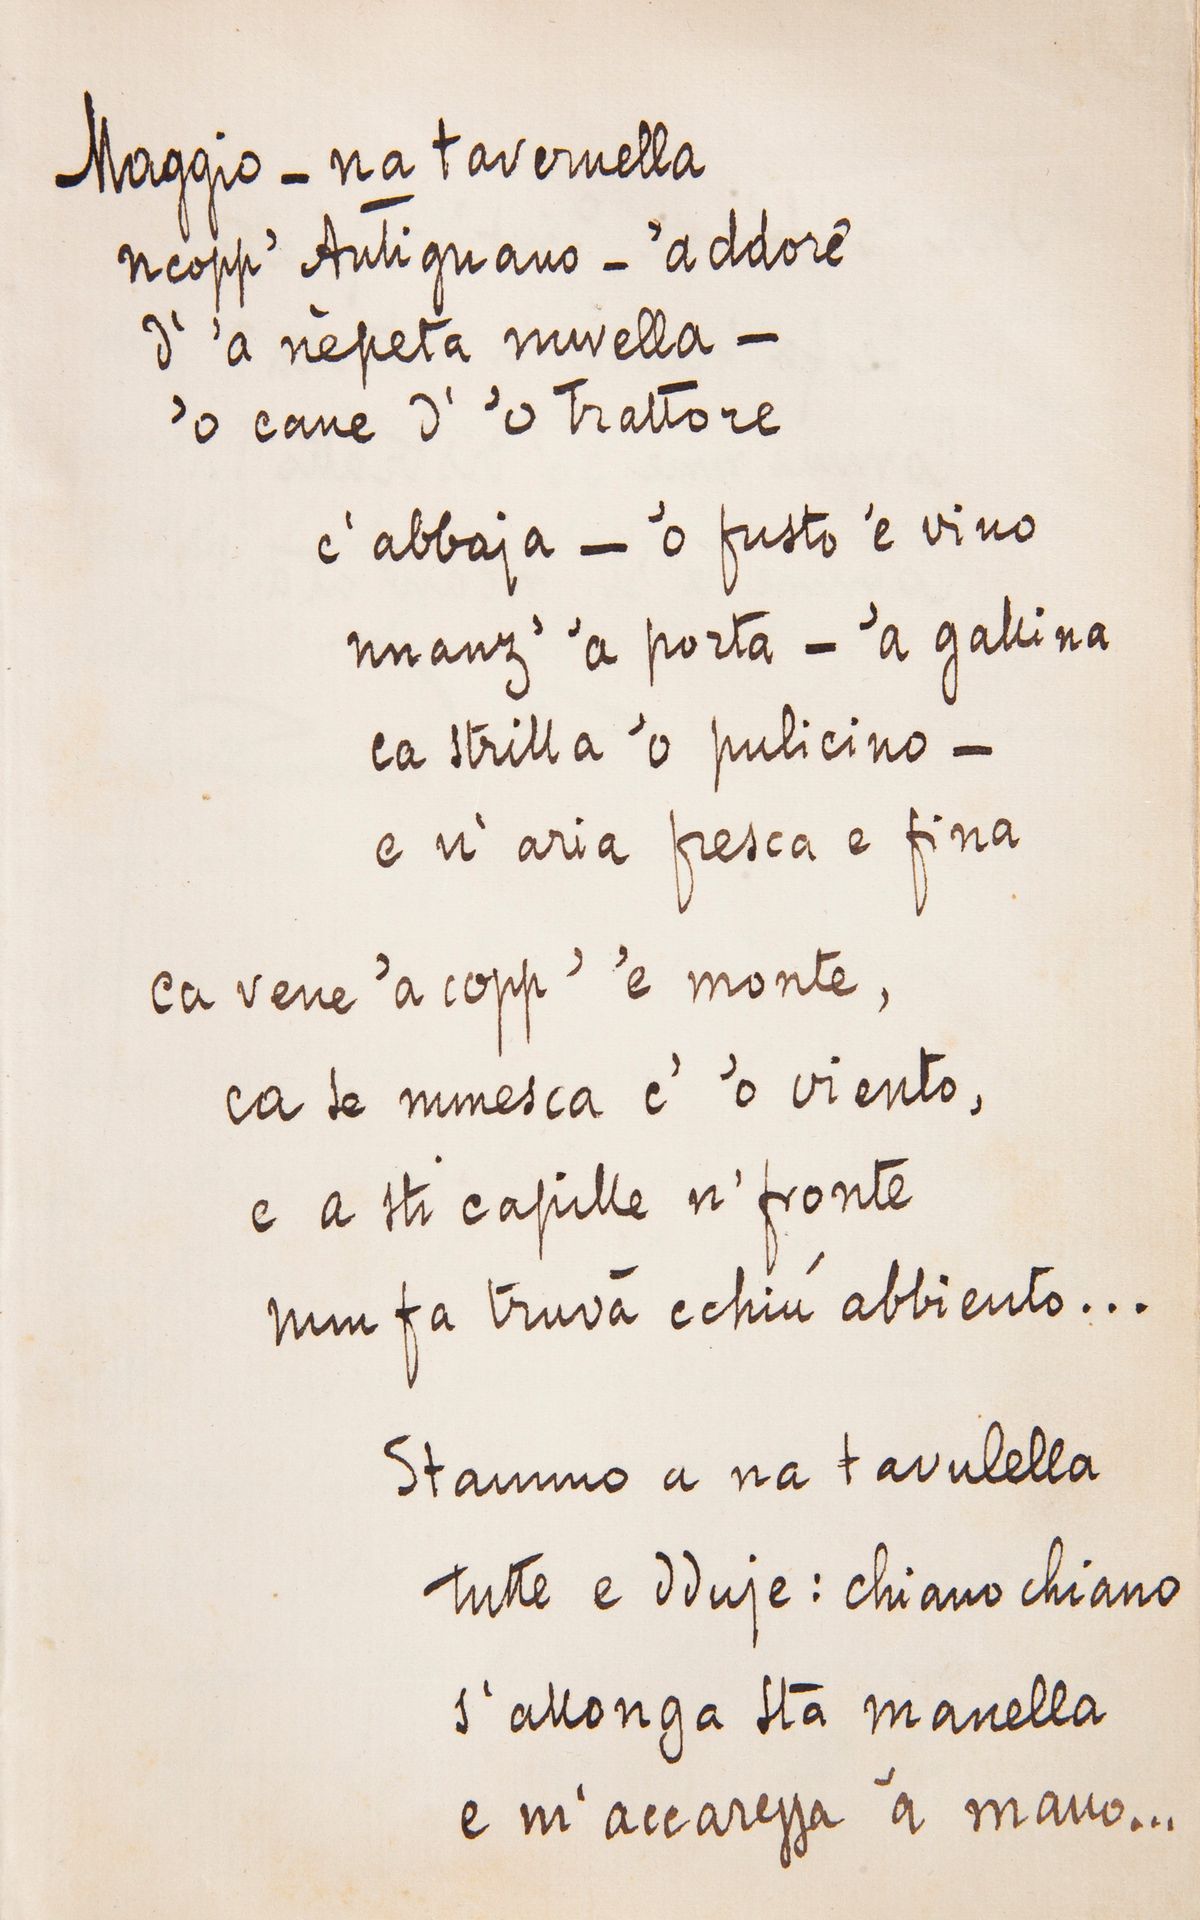 Maggio – na tavernella
ncopp' Antignano – 'addore
d' 'a nèpeta nuvella –
'o cane d' 'o trattore
c'abbaja – 'o fusto 'e vino
nnanz' 'a porta – 'a gallina
ca strilla 'o pulicino –
e n'aria fresca e fina
ca vene 'a copp' 'e monte,
ca se mmesca c' 'o viento,
e a sti capille n'fronte
nun fa truvà cchiú abbiento...
Stammo a na tavulella
tutte e dduje: chiano chiano
s'allonga sta manella
e m'accarezza 'a mano...